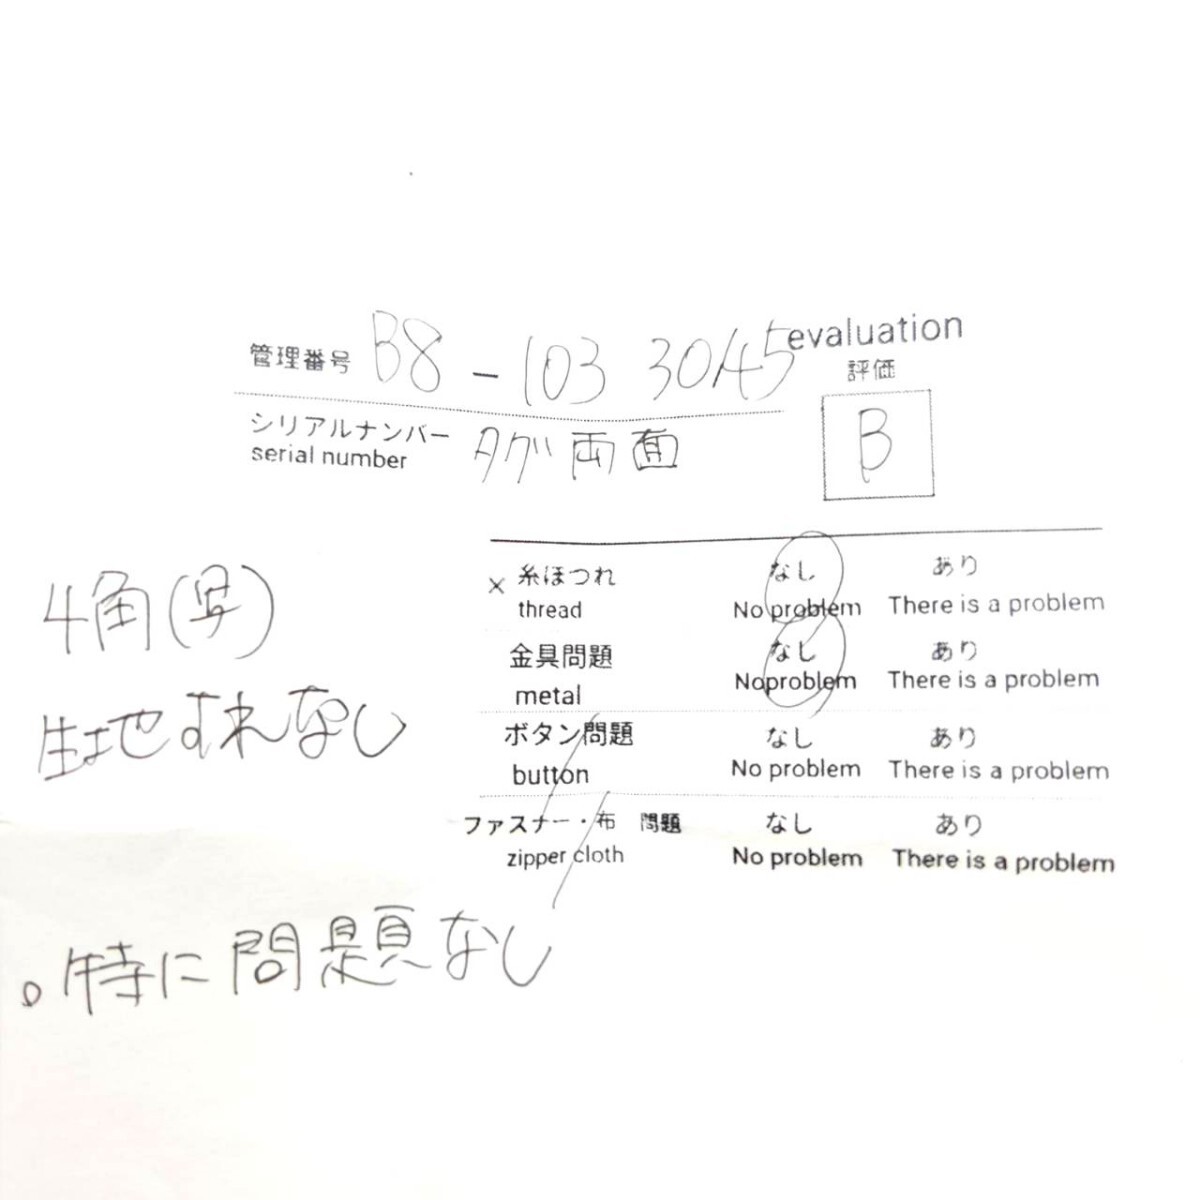 管理番号 B8-103 30145
evaluation
評価
B
シリアルナンバー タグ両面
serial number
× 糸ほつれ なし あり
thread No problem There is a problem
金具問題 なし あり
metal Noproblem There is a problem
ボタン問題 なし あり
button No problem There is a problem
ファスナー・布 問題 なし あり
zipper cloth No problem There is a problem
4角
生地すれなし
。特に問題なし